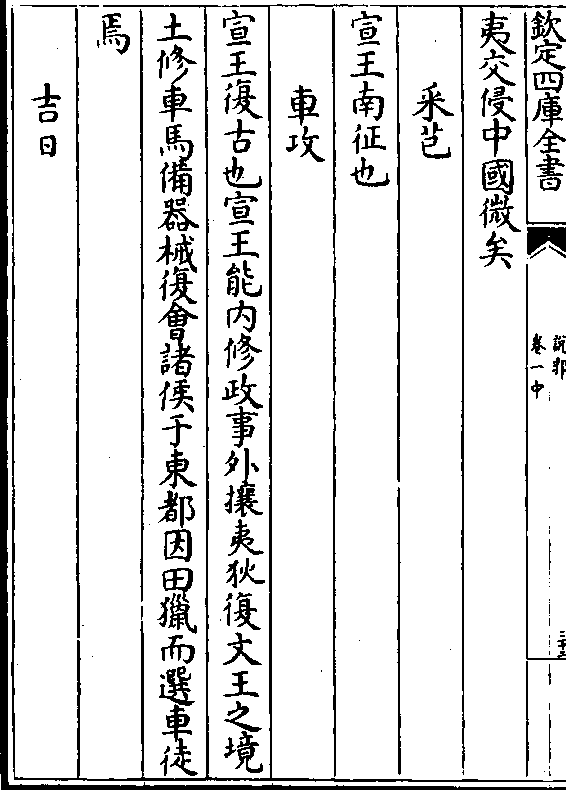 欽定四庫全書
說郛
卷一中
夷交侵中國微矣
采芑
宣王南征也
車攻
宣王復古也宣王能内修政事外攘夷狄復文王之境
土修車馬備器械復會諸侯于東都因田獵而選車徒
焉
吉日